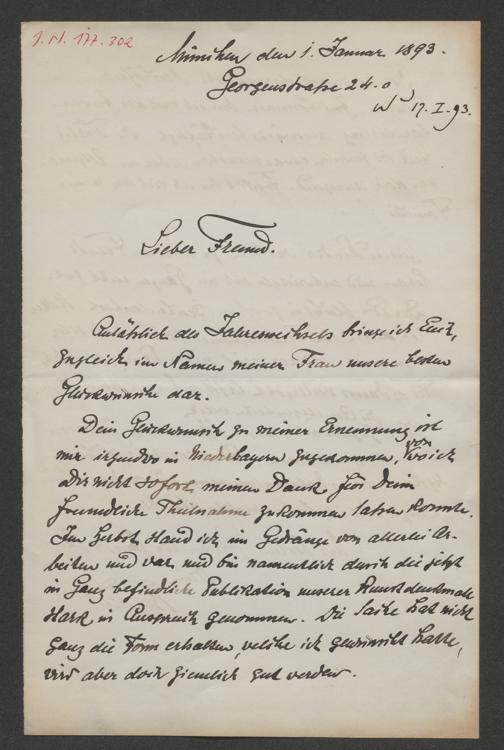 J.N. 177.302
München den 1. Januar 1893.
Georgenstraße 24.0
17.I.93.
Lieber Freund.
Anläßlich des Jahreswechsels bringe ich Euch,
zugleich im Namen meiner Frau unsere besten
Glückwünsche dar.
Dein Glückwunsch zu meiner Ernennung ist
mir irgendwo in Niederbayern zugekommen, von wo ich
Dir nicht sofort meinen Dank für Deine
freundliche Theilnahme zukommen lassen konnte.
Im Herbst stand ich im Gedränge von allerlei Ar-
beiten und war und bin namentlich durch die jetzt
in Gang befindliche Publikation unserer Kunstdenkmale
stark in Anspruch genommen. Die Sache hat nicht
ganz die Form erhalten, welche ich gewünscht hatte,
wird aber doch ziemlich gut werden.